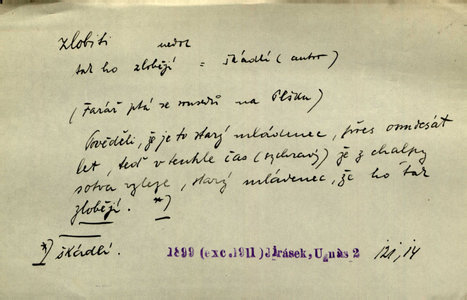 zlobiti nedok
tak ho zlobějí = škádlí (autor)
(Farář ptá se sousedů na Plšku)
Pověděli, že je to starý mládenec, přes osmdesát
let, teď v tenhle čas (nezdravý) že z chalupy
sotva vyleze, starý mládenec, že ho tak
zlobějí. *)
*) škádlí. 1899 (exc.1911) Jirásek, U nás 2 121, 14